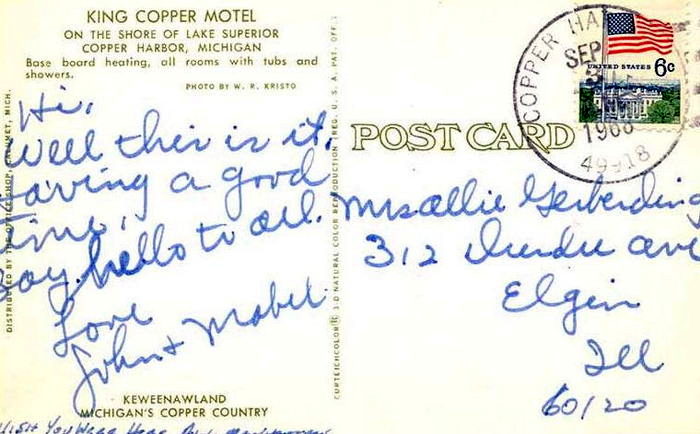 KING COPPER MOTEL
ON THE SHORE OF LAKE SUPERIOR
COPPER HARBOR, MICHIGAN
Base board heating, all rooms with tubs and
showers.
PHOTO BY W. R. KRISTO
Hi,
Well this is it.
Having a good
time,
Say hello to all.
Love
John + Mabel
KEWEENAWLAND
MICHIGAN'S COPPER COUNTRY
Wish You Were Here
DISTRIBUTED BY THE OFFICE SHOP, CALUMET, MICH.
CURTEICHCOLOR® 3-D NATURAL COLOR REPRODUCTION (REG. U. S. A. PAT. OFF.)
POST CARD
COPPER HA
SEP
3
1968
49918
UNITED STATES 6c
Mrs Allie Gerberding
312 Dundee ave
Elgin
Ill
60120